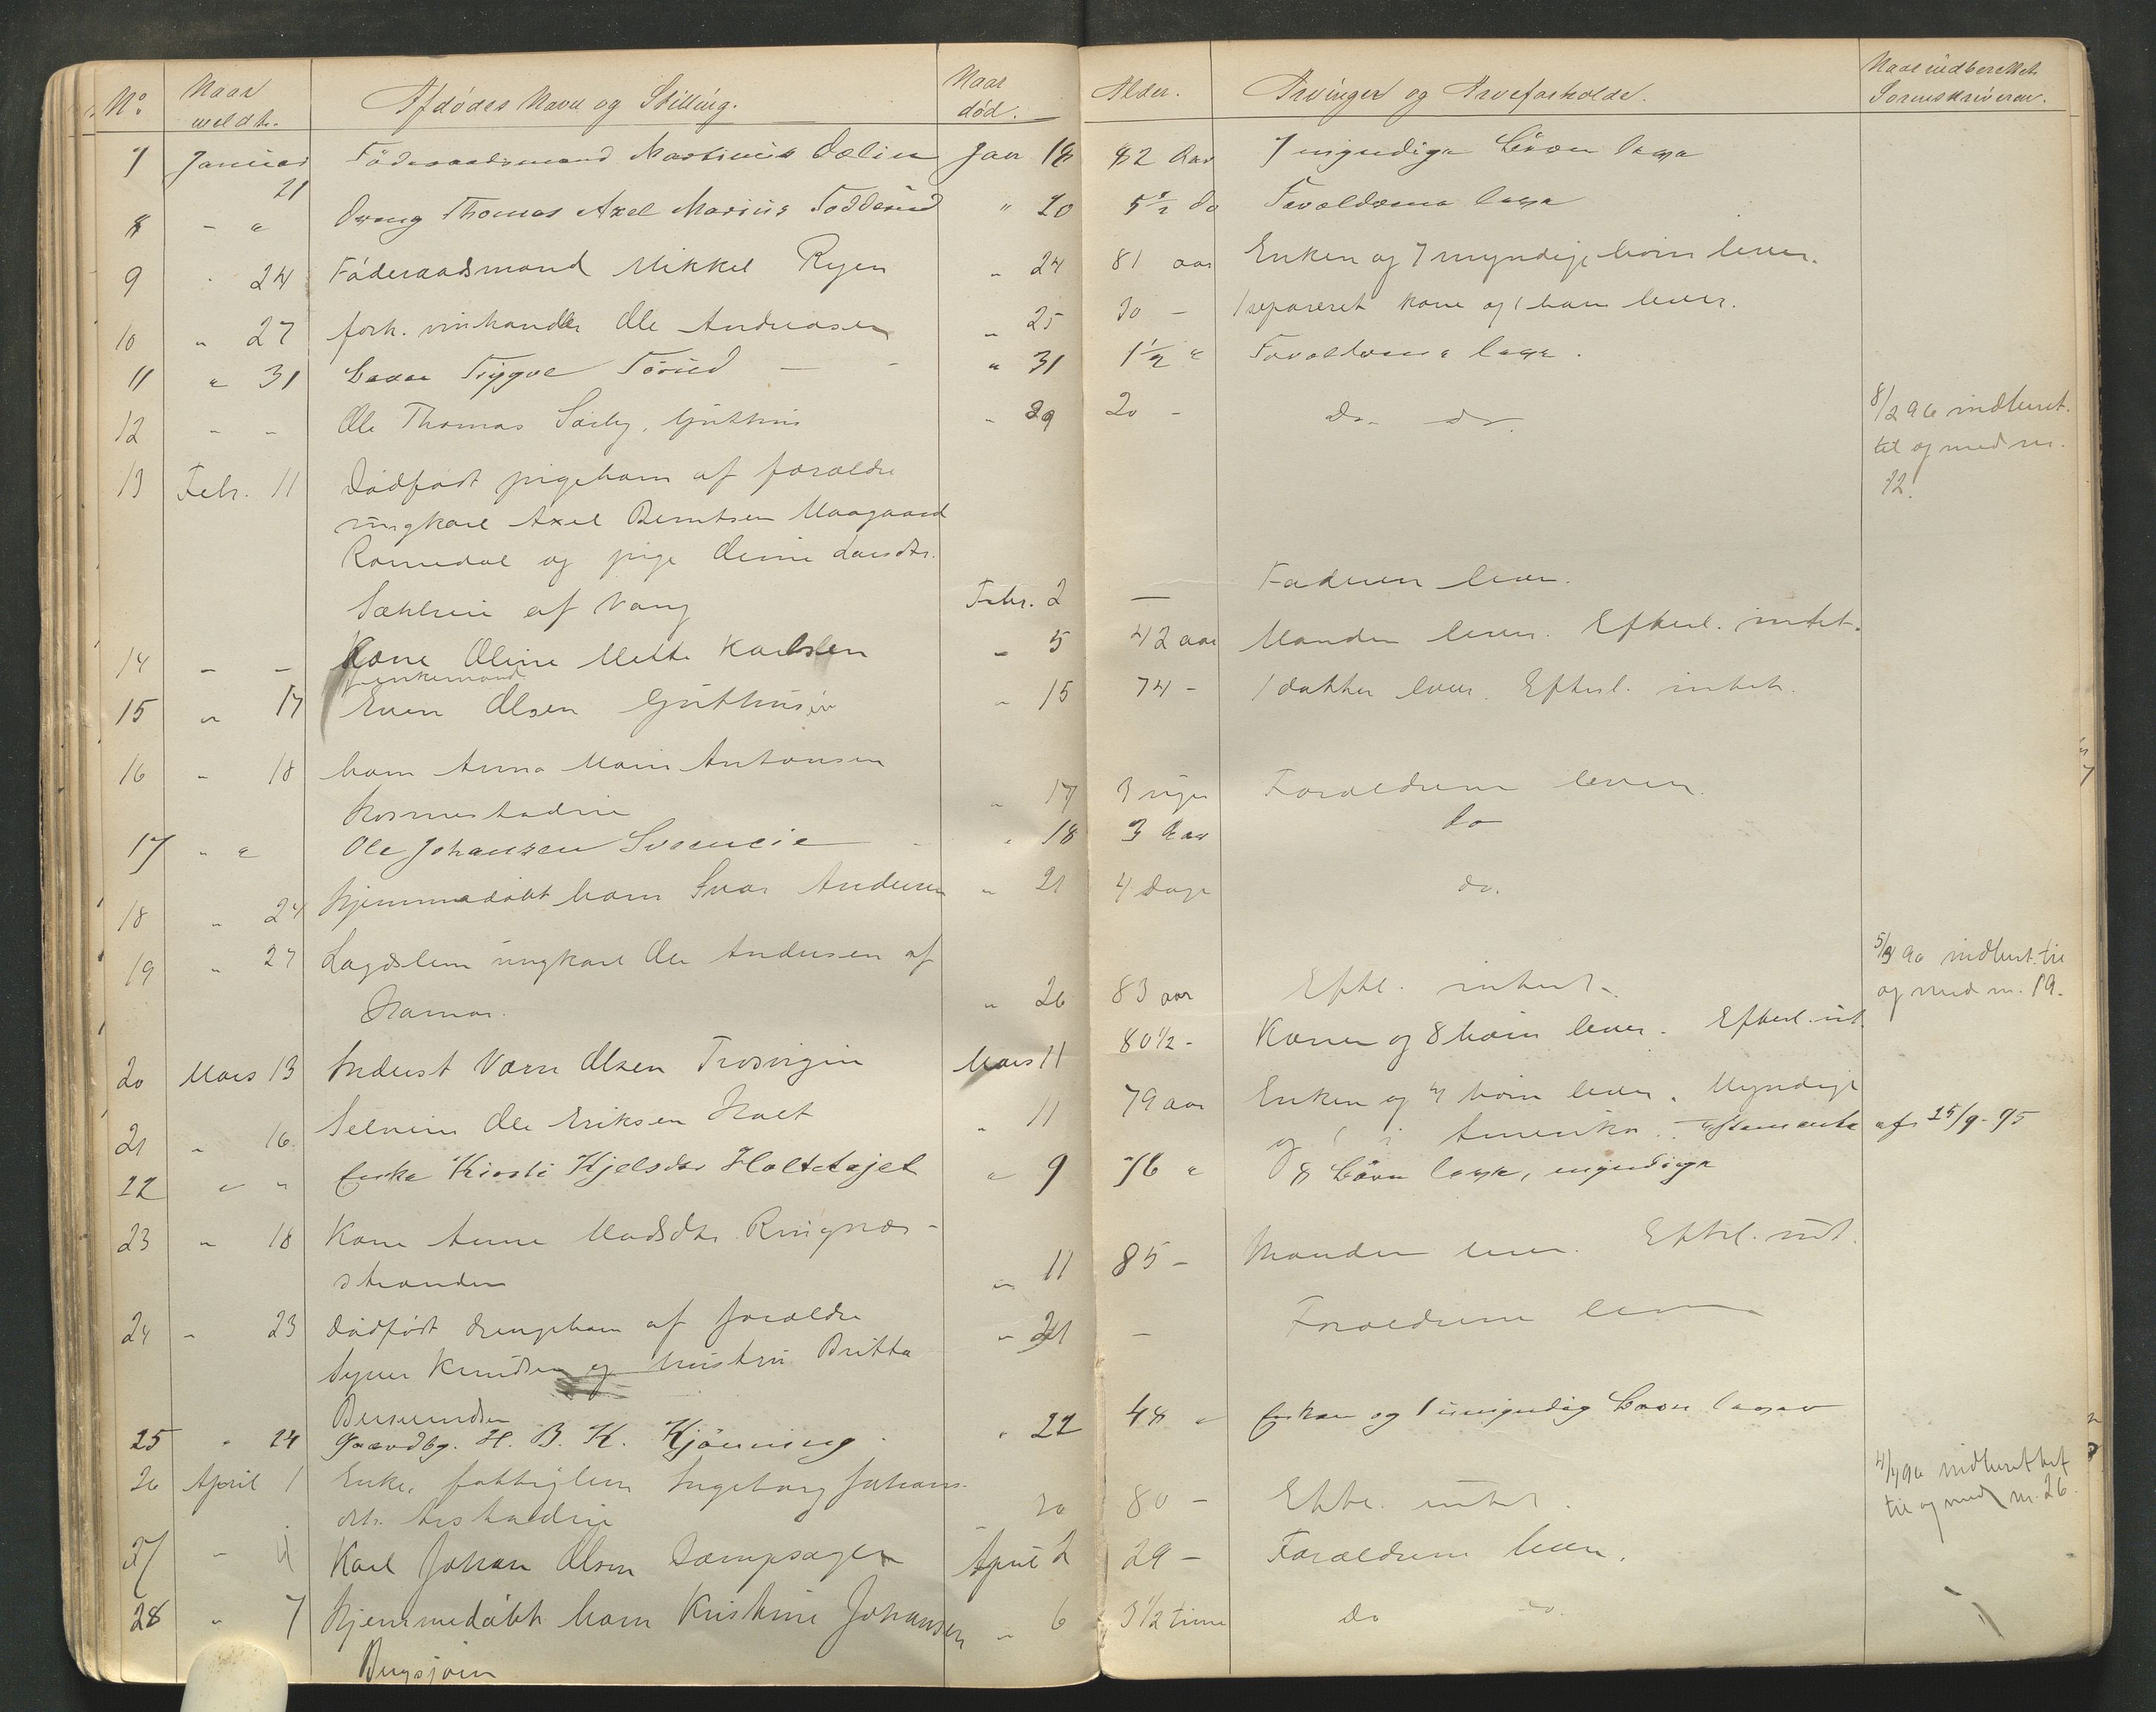 No. Naar meldt. Afdödes Navn og Stilling. Naar död. Alder. Arvinger og Arveforholde. Naar indberettet Sorenskriveren.
7 Januar 21 Föderaadsmand Martinius Dælin Jan 18 82 Aar 7 myndige Börn leve
8 - " Dreng Thomas Axel Marius Fodderud " 20 5 1/2 do Forældrene leve
9 " 24 Föderaadsmand Mikkel Ryen " 24 81 aar Enken og 7 myndige börn lever.
10 " 27 forh. vinhandler Ole Andreasen " 25 30 - 1 separeret kone og 1 barn lever.
11 " 31 Barn Trygve Törud - - " 31 1 1/2 " Forældrene leve.
12 - - Ole Thomas Sörby, Gjuthus " 29 20 - Do do 8/2 96 indberet.
til og med nr.
12.
13 Febr. 11 Dödfödt pigebarn af forældre
ungkarl Axel Berntsen Maagaard
Romedal og pige Oline Larsdtr.
af Vang Febr. 2 — Faderen lever.
14 - - Kone Oline Mette Karlsen " 5 42 aar Manden lever. Efterl. intet.
enkemand
15 " 17 Even Olsen Gjuthuset " 15 74 - 1 datter lever. Efterl. intet.
16 " 18 barn Anna Marie Antonsen
Kosmostadeie " 17 3 uger Forældrene lever.
17 " " Ole Johansen Svenneie - " 18 3 Aar do
18 " 24 Hjemmedöbt barn Ivar Andersen " 21 4 Dage do.
19 " 27 Lægdslem ungkarl Ole Andersen af
Hamar. " 26 83 aar Efterl. intet. 5/3 96 indbert. til
og med nr. 19.
20 Mars 13 Inderst Olsen Trosvigen Mars 11 80 1/2 - Konen og 8 börn lever. Efterl. int.
21 " 16. Selveier Ole Eriksen Holt " 11 79 aar Enken og 4 börn lever. Myndige
og 1 i Amerika. Testamente af 25/9-95
22 " " Enke Kirsti Kjelsdtr Holtetajet " 9 76 " 8 Börn leve, myndige
23 " 18 Kone Anne Madsdtr. Ringnes-
stranden " 11 85 - Manden lever. Efterl. int.
24 " 23 Dödfödt drengebarn af forældre " 21 - Forældrene lever
Syver Knudsen og hustru Britta
25 " 24 Gaardbg. H. B. K. Hjönning " 22 48 " Enken og 1 umyndig Barn lever
26 April 1 Enke, fattiglem Ingeborg Johans-
dtr. Arstadeie 30 80 - Efterl. intet. 4/4 96 indberettet
til og med nr. 26.
27 - 4 Karl Johan Olsen Dampsagen April 2 29 - Forældrene lever.
28 " 7 Hjemmedöbt barn Kristine Johansen " 6 3 1/2 time Do do.
Bergsjöen